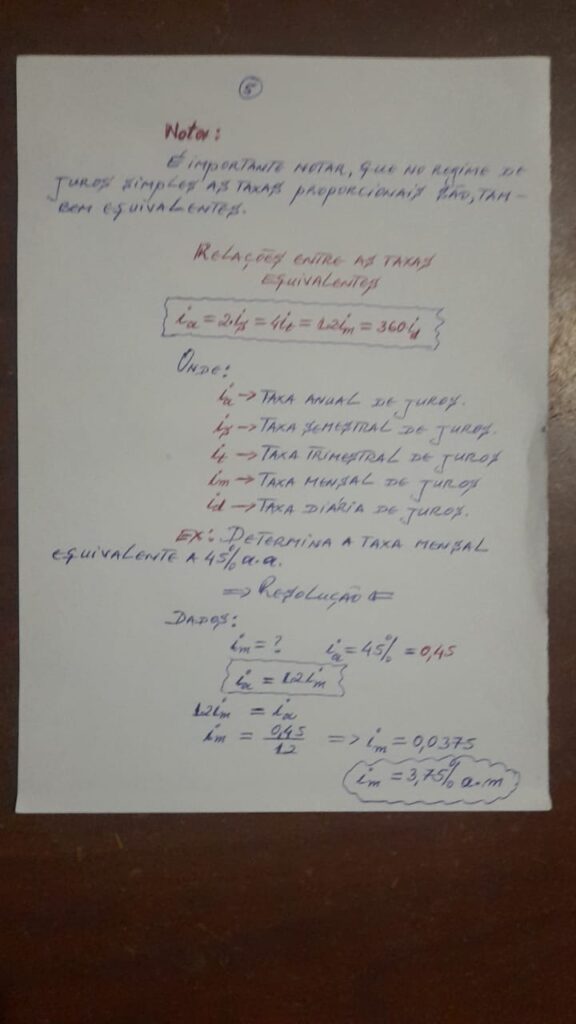 5
Nota:
É IMPORTANTE NOTAR, QUE NO REGIME DE
JUROS SIMPLES AS TAXAS PROPORCIONAIS SÃO, TAM-
BEM EQUIVALENTES.
RELAÇÕES ENTRE AS TAXAS
EQUIVALENTES
ia = 2is = 4it = 12im = 360id
ONDE:
ia → TAXA ANUAL DE JUROS.
is → TAXA SEMESTRAL DE JUROS.
it → TAXA TRIMESTRAL DE JUROS
im → TAXA MENSAL DE JUROS
id → TAXA DIÁRIA DE JUROS.
EX: DETERMINA A TAXA MENSAL
EQUIVALENTE A 45% a.a.
⇒ RESOLUÇÃO ⇐
DADOS:
im = ? ia = 45% = 0,45
ia = 12im
12im = ia
im = 0,45/12 => im = 0,0375
im = 3,75% a.m